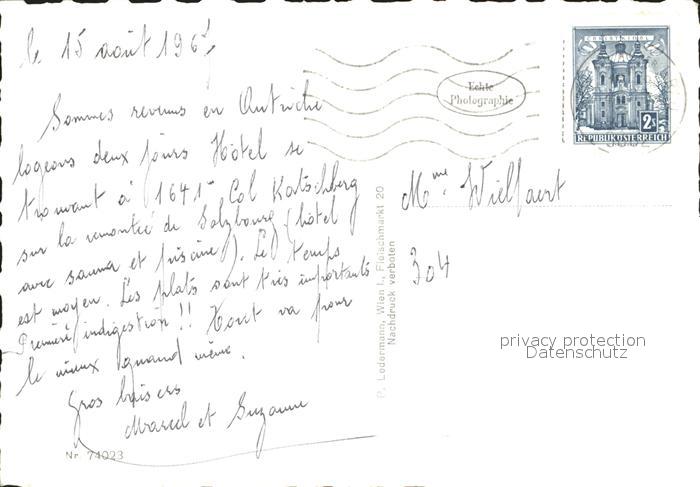 le 15 août 196
Sommes revenus en Autriche
logeons deux jours Hôtel se
trouvant à 1641m Col Katschberg
sur la remontée de Salzbourg (hôtel
avec sauna et piscine). Le temps
est moyen. Les plats sont très importants
Première indigestion !! Tout va pour
le mieux quand même.
Gros baisers
Marcel et Suzanne
Nr. 74023
P. Ledermann, Wien I., Fleischmarkt 20
Nachdruck verboten
Echte
Photographie
2S
REPUBLIK ÖSTERREICH
Mme Wielfaert
304
privacy protection
Datenschutz